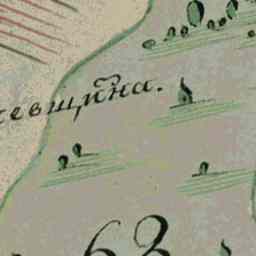 евщина.
63